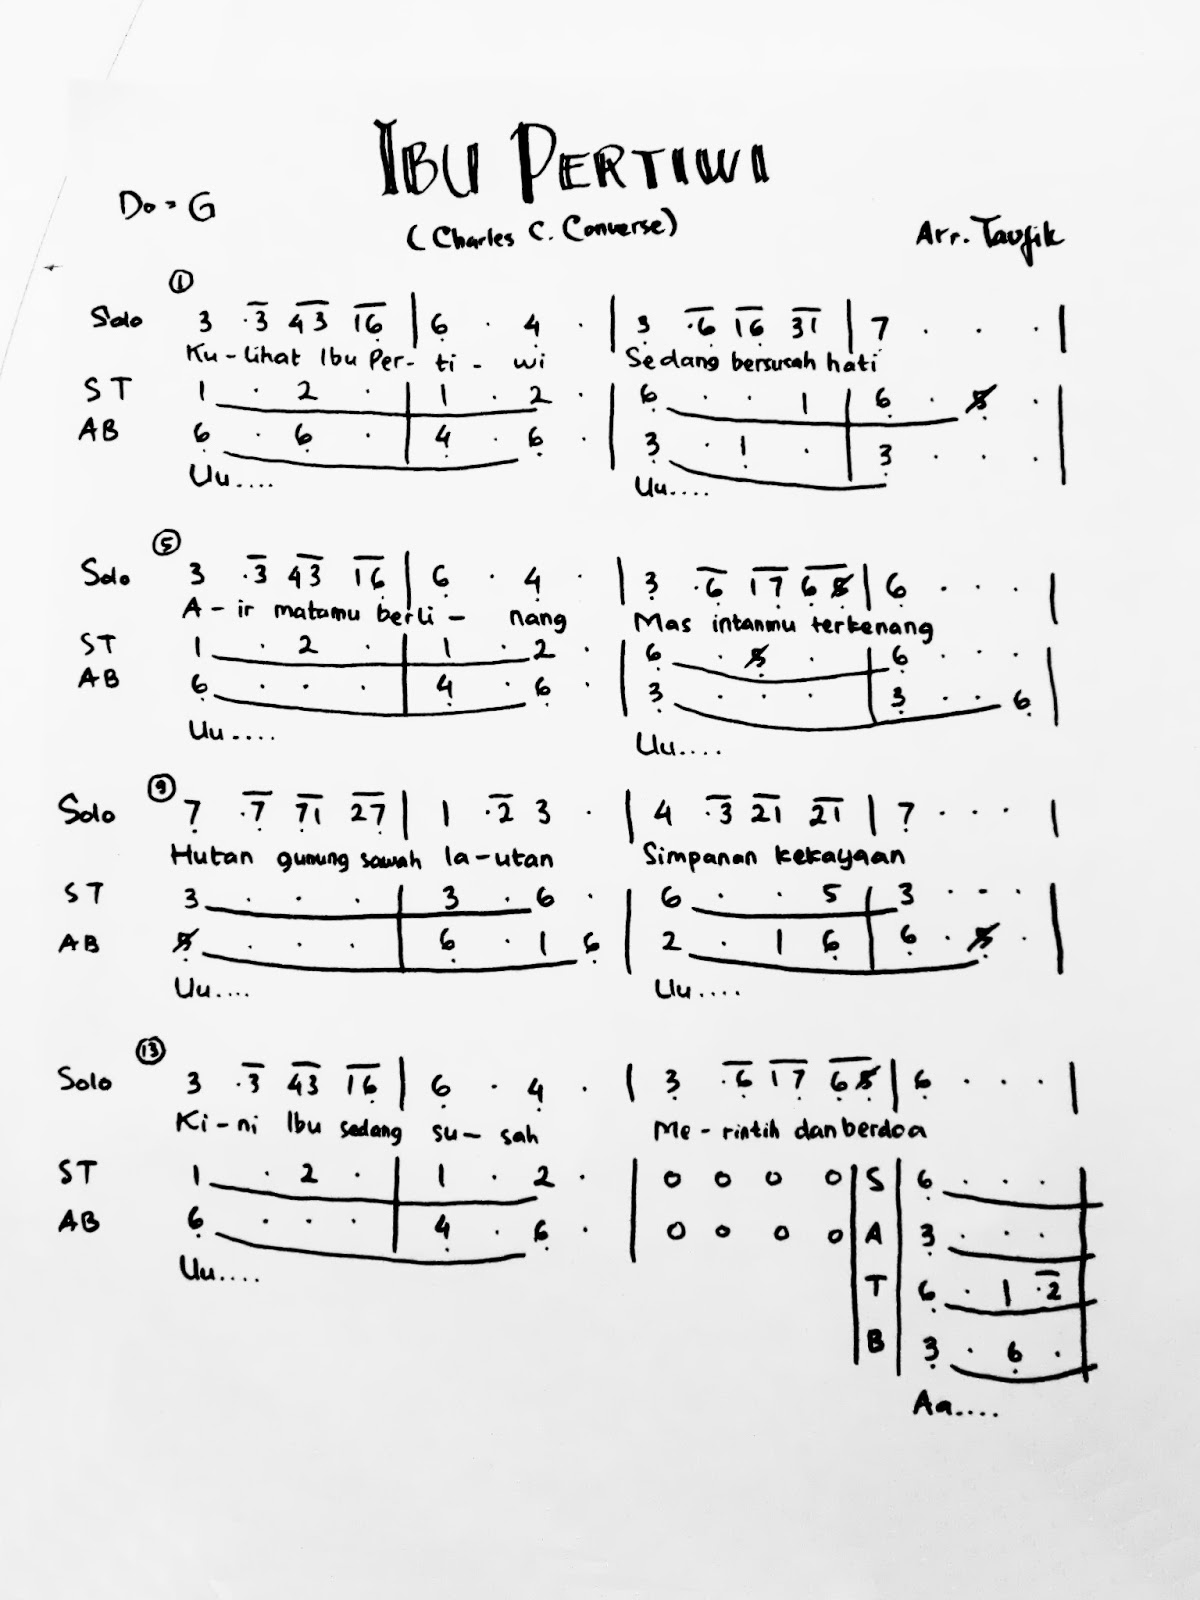 IBU PERTIWI
Do = G
(Charles C. Converse)
Arr. Taufik
①
Solo 3 .3 43 16̣ | 6̣ . 4̣ . | 3̣ .6̣ 16̣ 31 | 7̣ . . . |
Ku-lihat Ibu Per-ti-wi Sedang bersusah hati
ST 1 . 2 . | 1 . 2 . | 6̣ . . 1 | 6̣ . 5̸̣ . |
AB 6̣ . 6̣ . | 4̣ . 6̣ . | 3̣ . 1 . | 3̣ . . . |
Uu.... Uu....
⑤
Solo 3 .3 43 16̣ | 6̣ . 4̣ . | 3̣ .6̣ 17̣ 6̣5̸̣ | 6̣ . . . |
A-ir matamu berli-nang Mas intanmu terkenang
ST 1 . 2 . | 1 . 2 . | 6̣ . 5̸̣ . | 6̣ . . . |
AB 6̣ . . . | 4̣ . 6̣ . | 3̣ . . . | 3̣ . . 6̣ |
Uu.... Uu....
⑨
Solo 7̣ .7̣ 7̣1 27̣ | 1 .2 3 . | 4 .3 21 21 | 7̣ . . . |
Hutan gunung sawah la-utan Simpanan kekayaan
ST 3 . . . | 3 . 6 . | 6 . . 5 | 3 . . . |
AB 5̸̣ . . . | 6̣ . 1 6̣ | 2 . 1 6̣ | 6̣ . 5̸̣ . |
Uu.... Uu....
⑬
Solo 3 .3 43 16̣ | 6̣ . 4̣ . | 3̣ .6̣ 17̣ 6̣5̸̣ | 6̣ . . . |
Ki-ni Ibu sedang su-sah Me-rintih dan berdoa
ST 1 . 2 . | 1 . 2 . | 0 0 0 0 | S | 6̣ . . . |
AB 6̣ . . . | 4̣ . 6̣ . | 0 0 0 0 | A | 3̣ . . . |
T | 6̣ . 1 .2 |
B | 3̣ . 6̣ . |
Uu....
Aa....